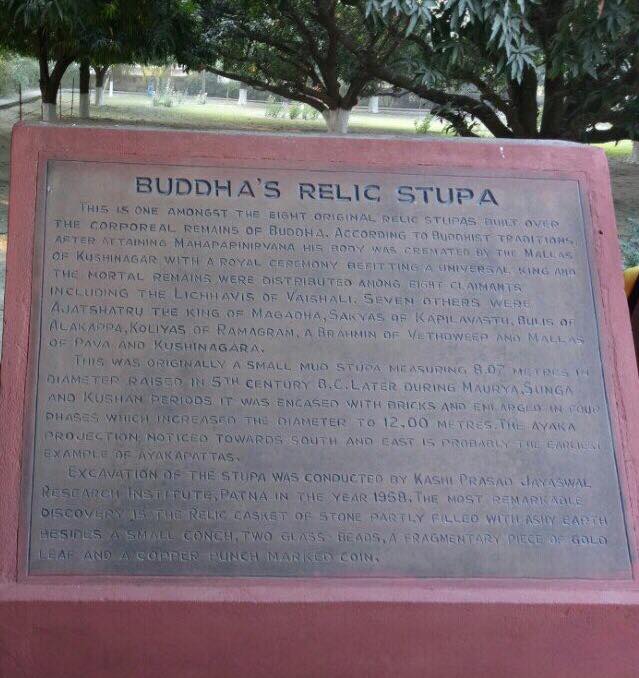 BUDDHA'S RELIC STUPA
THIS IS ONE AMONGST THE EIGHT ORIGINAL RELIC STUPAS BUILT OVER
THE CORPOREAL REMAINS OF BUDDHA. ACCORDING TO BUDDHIST TRADITIONS,
AFTER ATTAINING MAHAPAPINIRVANA HIS BODY WAS CREMATED BY THE MALLAS
OF KUSHINAGAR WITH A ROYAL CEREMONY BEFITTING A UNIVERSAL KING AND
THE MORTAL REMAINS WERE DISTRIBUTED AMONG EIGHT CLAIMANTS
INCLUDING THE LICHHAVIS OF VAISHALI. SEVEN OTHERS WERE
AJATSHATRU THE KING OF MAGADHA, SAKYAS OF KAPILAVASTU, BULIS OF
ALAKAPPA, KOLIYAS OF RAMAGRAM, A BRAHMIN OF VETHDWEEP AND MALLAS
OF PAVA AND KUSHINAGARA.
THIS WAS ORIGINALLY A SMALL MUD STUPA MEASURING 8.07 METRES IN
DIAMETER RAISED IN 5TH CENTURY B.C. LATER DURING MAURYA, SUNGA
AND KUSHAN PERIODS IT WAS ENCASED WITH BRICKS AND ENLARGED IN FOUR
PHASES WHICH INCREASED THE DIAMETER TO 12.00 METRES. THE AYAKA
PROJECTION NOTICED TOWARDS SOUTH AND EAST IS PROBABLY THE EARLIEST
EXAMPLE OF AYAKAPATTAS.
EXCAVATION OF THE STUPA WAS CONDUCTED BY KASHI PRASAD JAYASWAL
RESEARCH INSTITUTE, PATNA IN THE YEAR 1958. THE MOST REMARKABLE
DISCOVERY IS THE RELIC CASKET OF STONE PARTLY FILLED WITH ASHY EARTH
BESIDES A SMALL CONCH, TWO GLASS BEADS, A FRAGMENTARY PIECE OF GOLD
LEAF AND A COPPER PUNCH MARKED COIN.